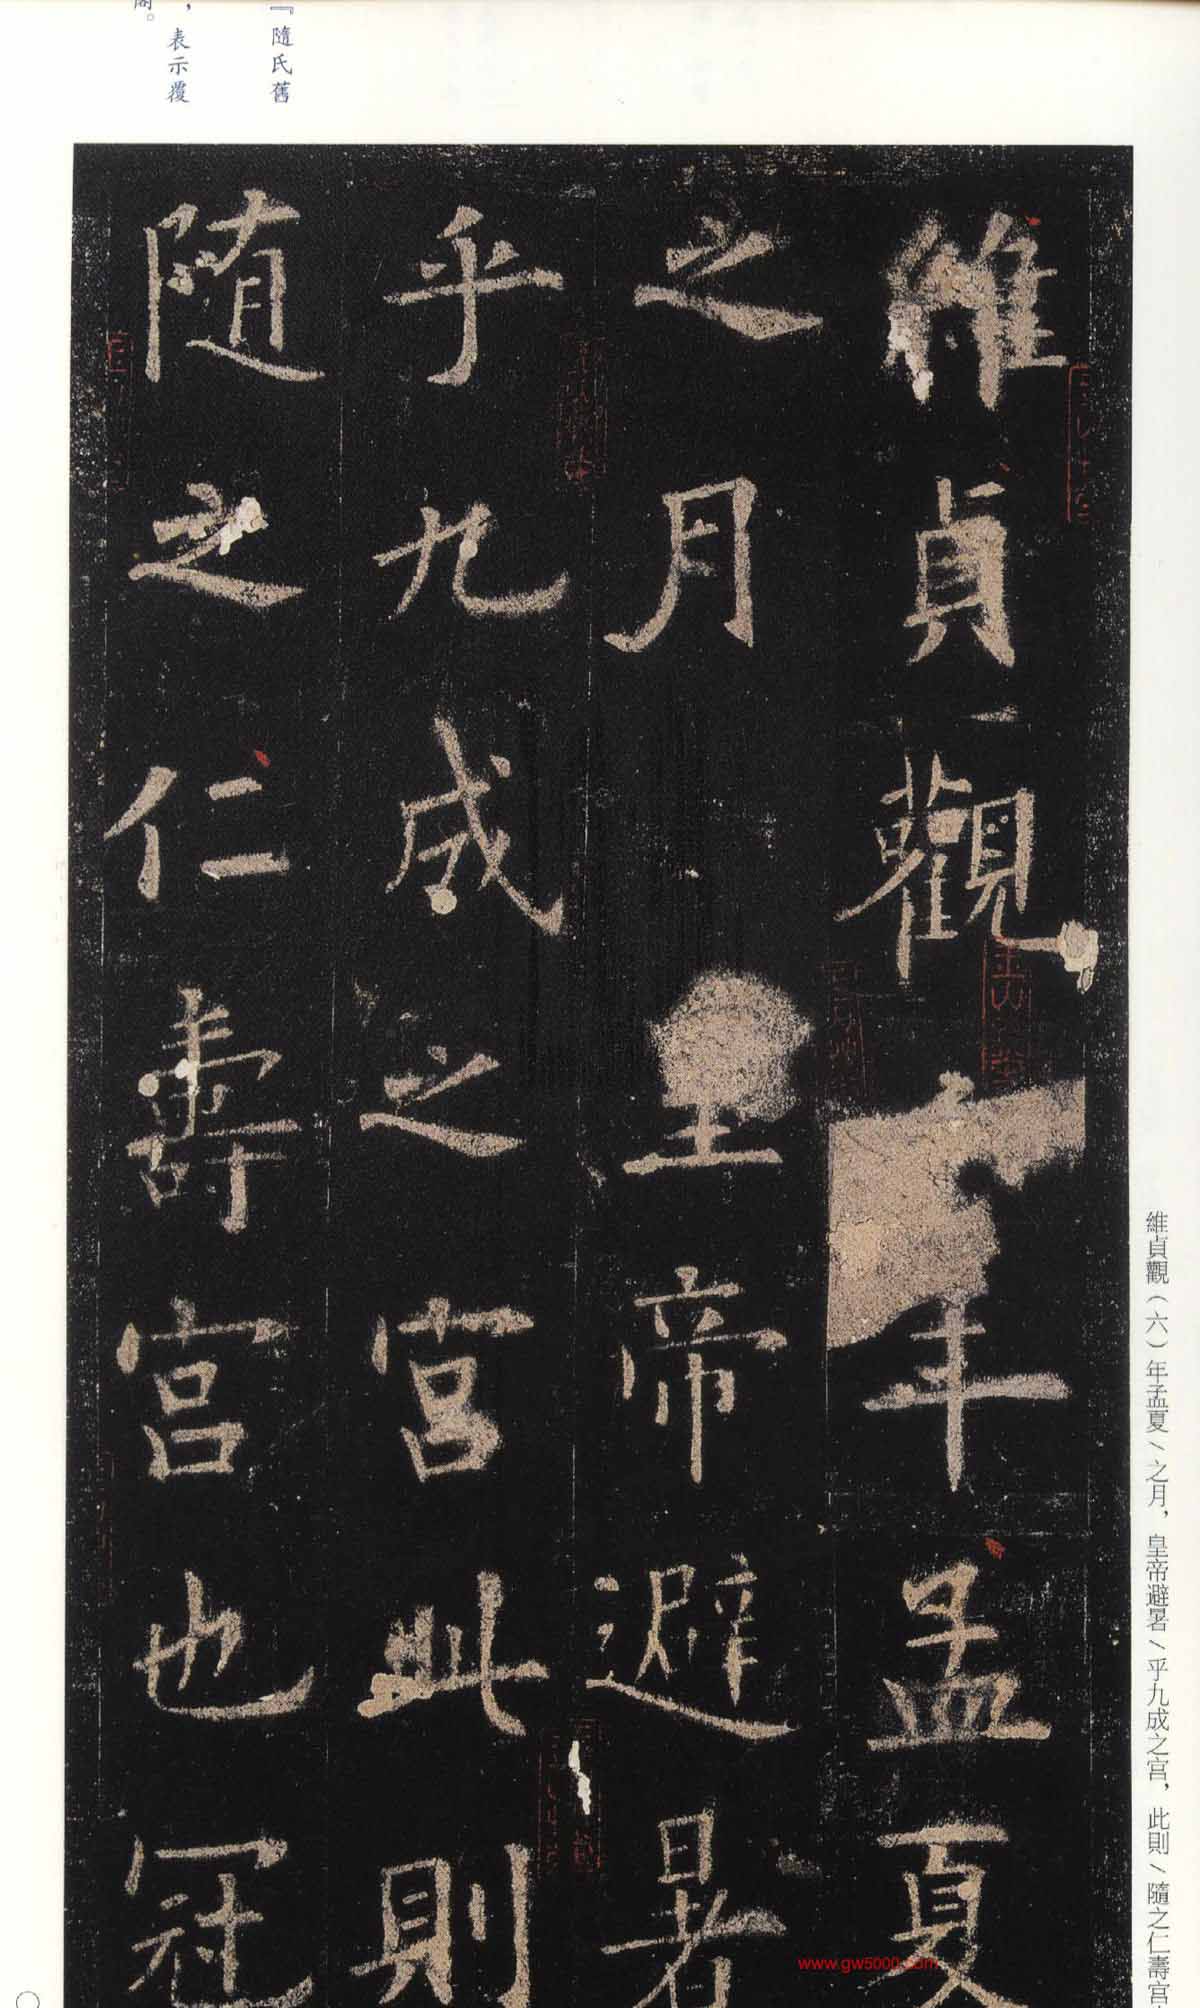 維貞觀年孟夏
之月皇帝避暑
乎九成之宮此則
随之仁壽宮也冠
維貞觀（六）年孟夏﹨之月，皇帝避暑﹨乎九成之宮，此則﹨隨之仁壽宮
『隨氏舊
，表示覆
閣。
www.gw5000.com